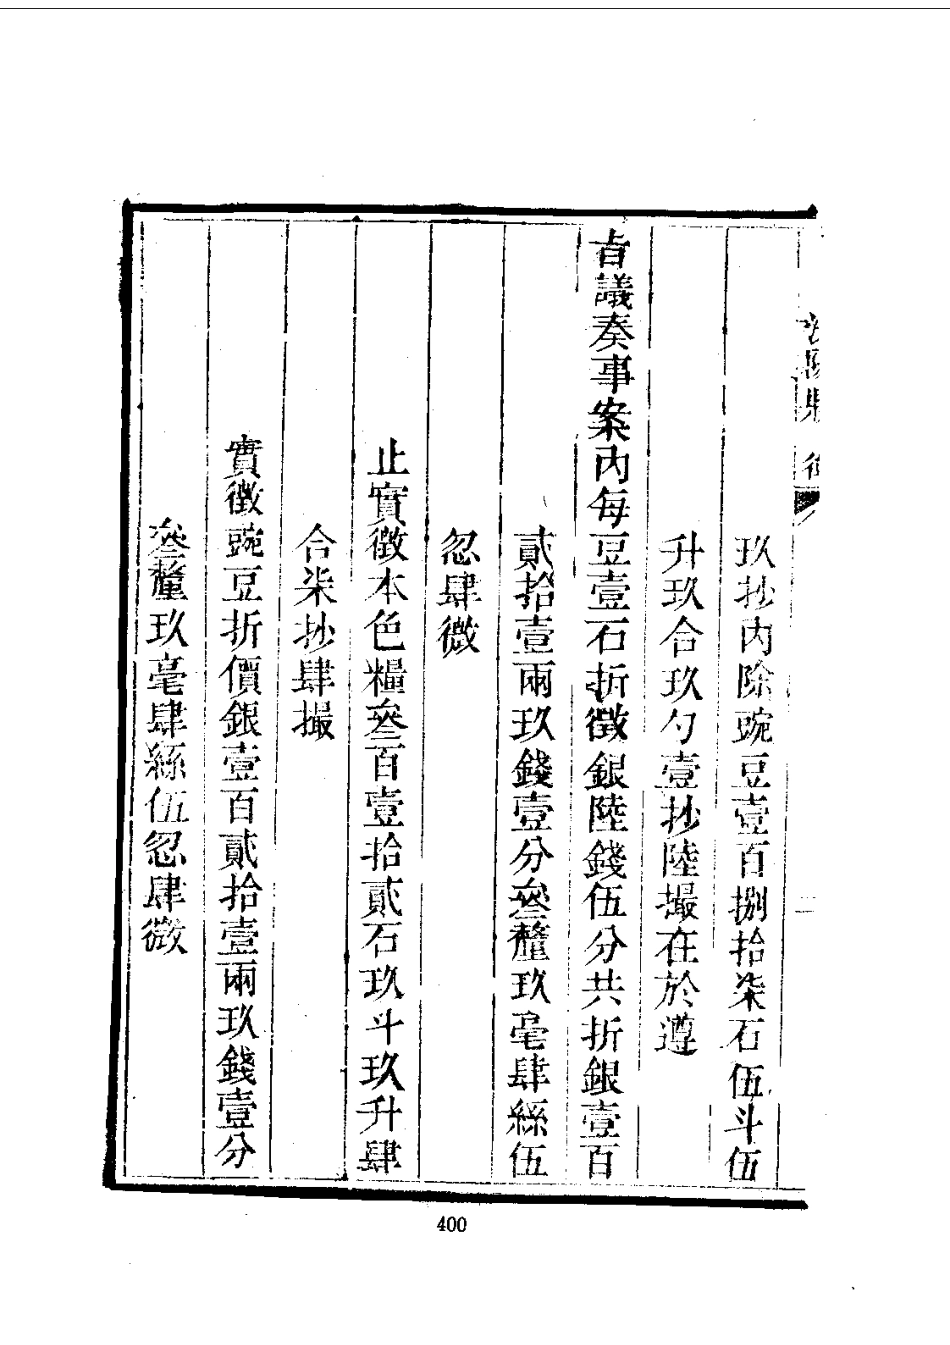 玖抄內除豌豆壹百捌拾柒石伍斗伍
升玖合玖勺壹抄陸撮在於遵
旨議奏事案內每豆壹石折徵銀陸錢伍分共折銀壹百
貳拾壹兩玖錢壹分叄釐玖毫肆絲伍
忽肆微
止實徵本色糧叄百壹拾貳石玖斗玖升肆
合柒抄肆撮
實徵豌豆折價銀壹百貳拾壹兩玖錢壹分
叄釐玖毫肆絲伍忽肆微
400